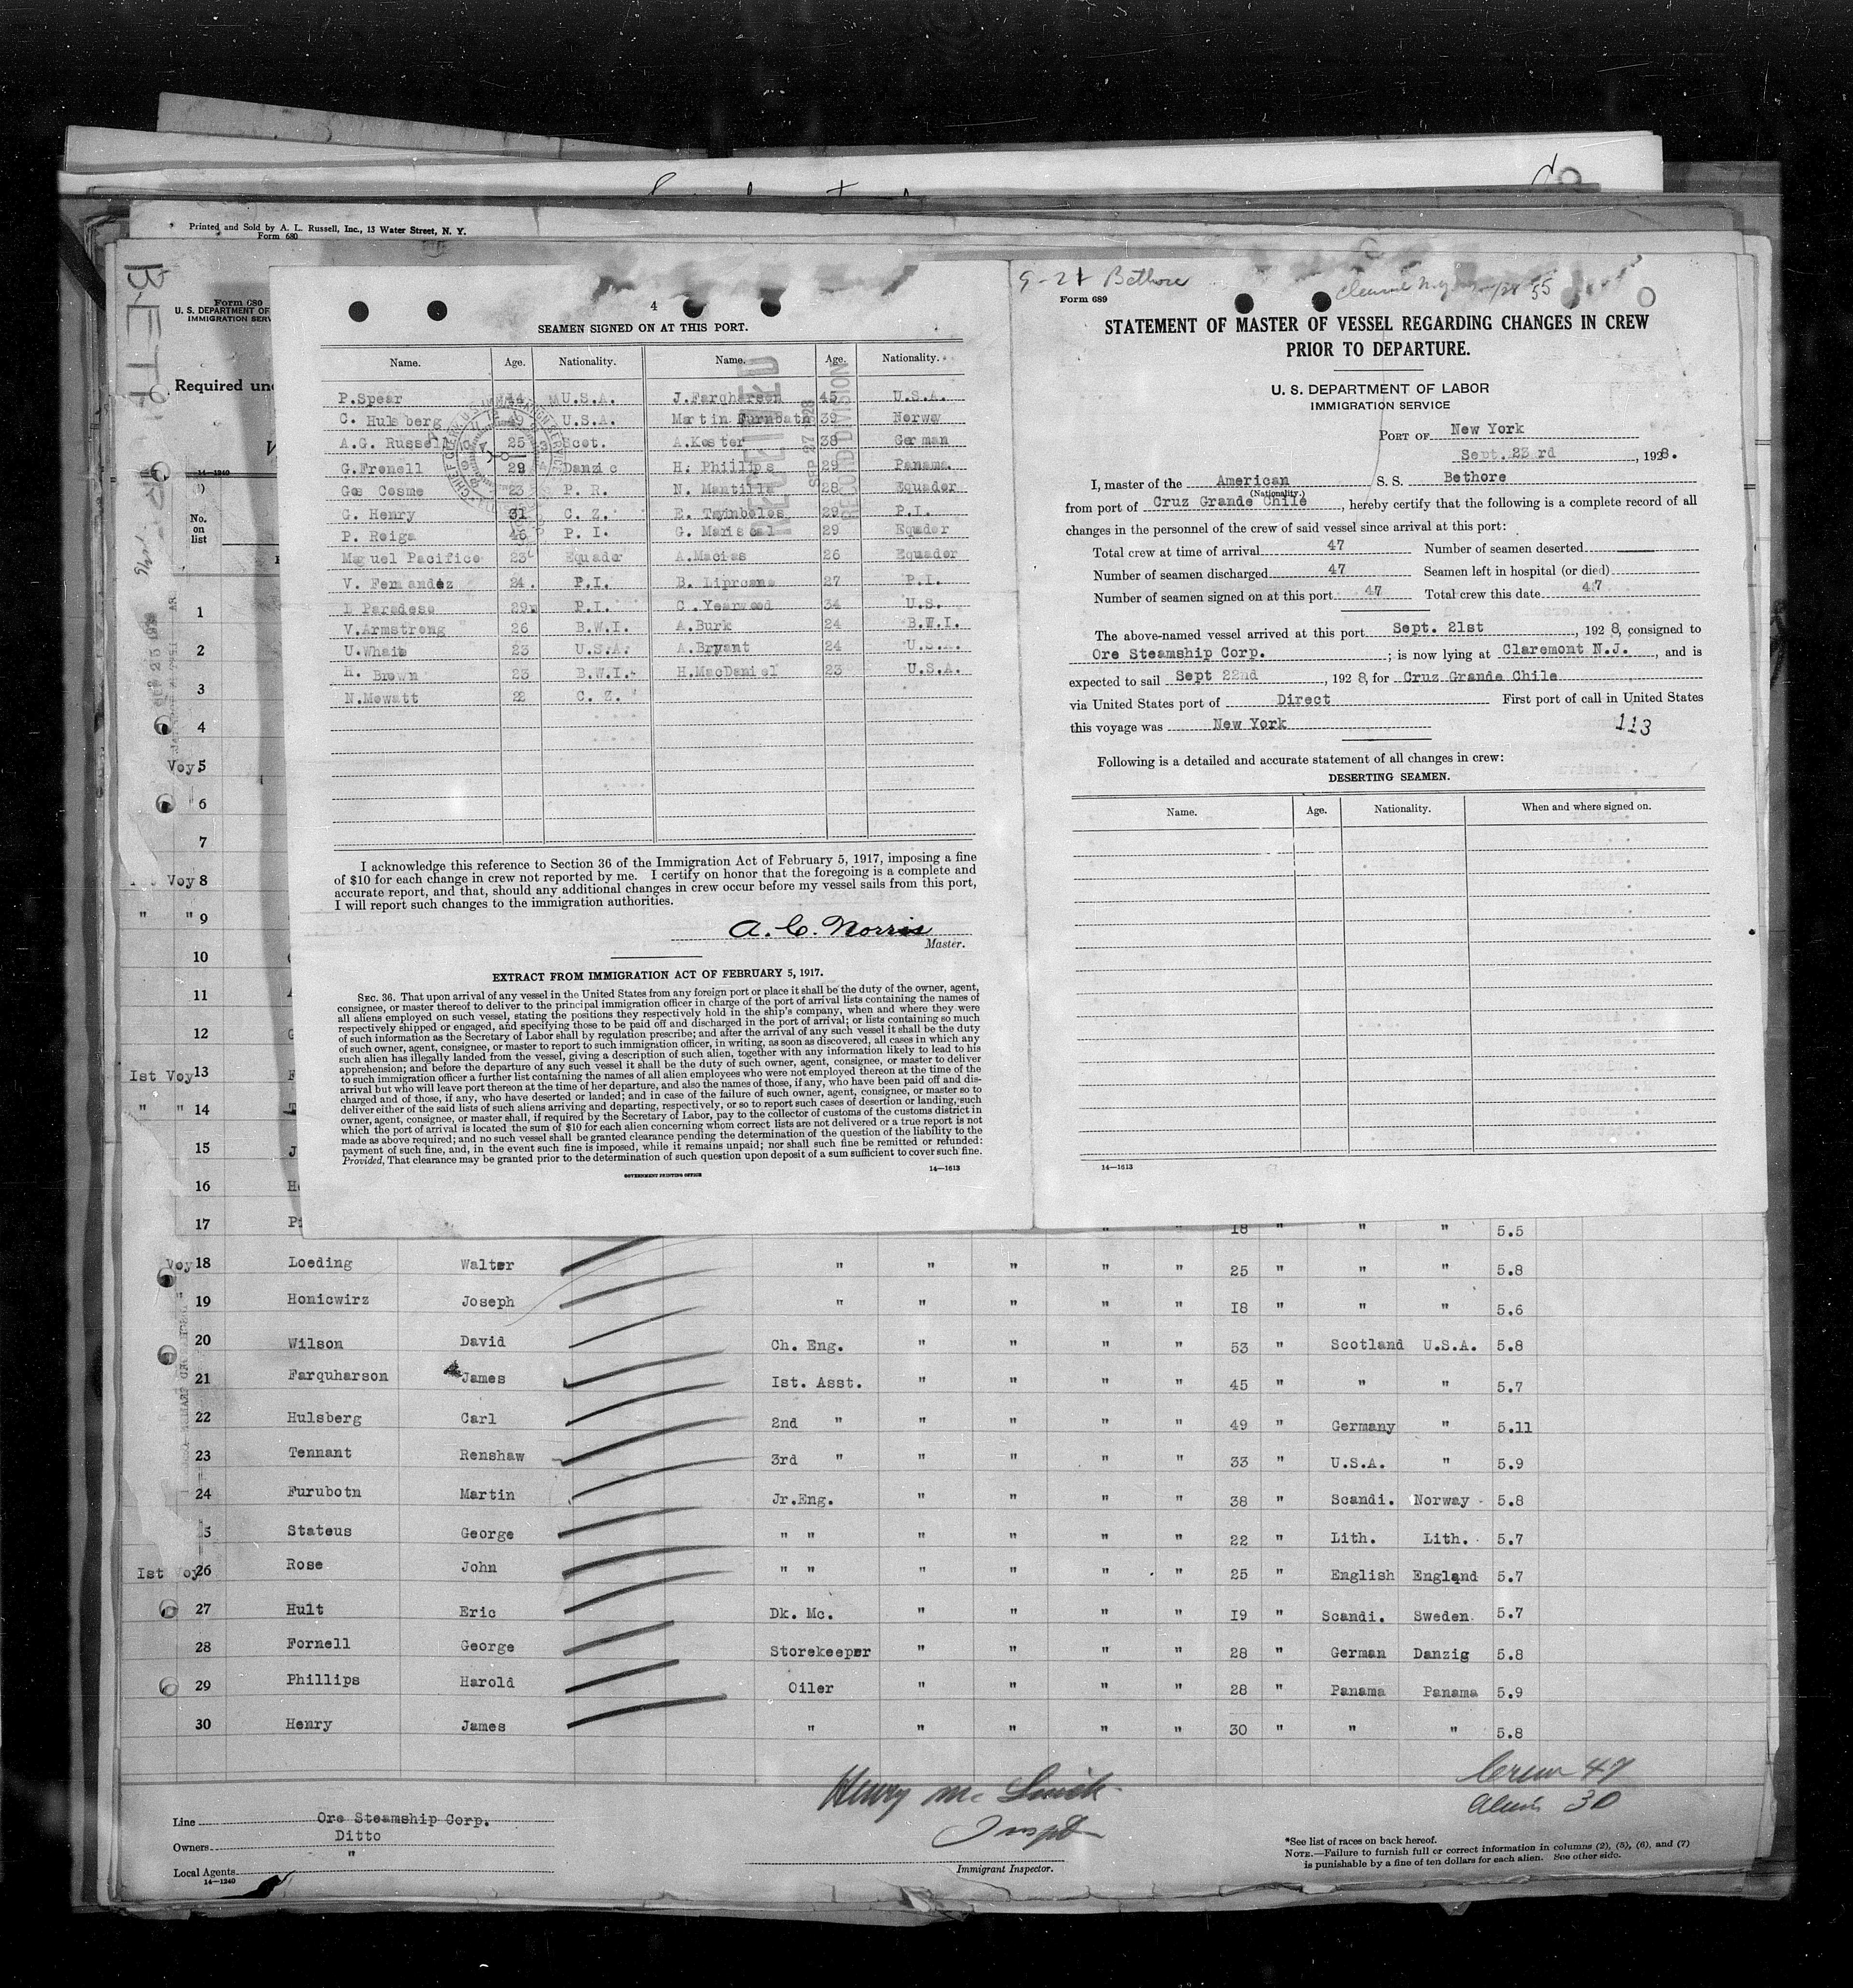 Printed and Sold by A. L. Russell, Inc., 13 Water Street, N. Y.
Form 680
Form 680
U. S. DEPARTMENT OF
IMMIGRATION SERV
Required un
14-1240
No.
on
list
4
SEAMEN SIGNED ON AT THIS PORT.
Name. Age. Nationality. Name. Age. Nationality.
P.Spear 44 U.S.A. J.Farqharsen 45 U.S.A.
C. Hulsberg 49 U.S.A. Martin 39 Norwa
A.G. Russell 25 Scot. A.Koster 38 German
G.Frenell 29 Danzic H. Phillips 29 Panama
Cosme 23 P. R. N. Mantilla 28 Equador
G. Henry 31 C. Z. E. 29 P.I.
P. Reiga P. I. G. Mariscal 29 Equador
Maguel Pacifico 23 Equador A.Macias 26 Equador
V. Fernandez 24 P.I. B. Liprcana 27 P.I.
L Paradese 29 P.I. C. Yearwood 34 U.S.
V.Armstrong 26 B.W.I. A.Burk 24 B.W.I.
U.Whait 23 U.S.A. A.Bryant 24 U.S.A.
H. Brown 23 B.W.I. H.MacDaniel 23 U.S.A.
N.Mowatt 22 C. Z.
I acknowledge this reference to Section 36 of the Immigration Act of February 5, 1917, imposing a fine
of $10 for each change in crew not reported by me. I certify on honor that the foregoing is a complete and
accurate report, and that, should any additional changes in crew occur before my vessel sails from this port,
I will report such changes to the immigration authorities.
A. C. Norris
Master.
EXTRACT FROM IMMIGRATION ACT OF FEBRUARY 5, 1917.
SEC. 36. That upon arrival of any vessel in the United States from any foreign port or place it shall be the duty of the owner, agent,
consignee, or master thereof to deliver to the principal immigration officer in charge of the port of arrival lists containing the names of
all aliens employed on such vessel, stating the positions they respectively hold in the ship's company, when and where they were
respectively shipped or engaged, and specifying those to be paid off and discharged in the port of arrival; or lists containing so much
of such information as the Secretary of Labor shall by regulation prescribe; and after the arrival of any such vessel it shall be the duty
of such owner, agent, consignee, or master to report to such immigration officer, in writing, as soon as discovered, all cases in which any
such alien has illegally landed from the vessel, giving a description of such alien, together with any information likely to lead to his
apprehension; and before the departure of any such vessel it shall be the duty of such owner, agent, consignee, or master to deliver
to such immigration officer a further list containing the names of all alien employees who were not employed thereon at the time of the
arrival but who will leave port thereon at the time of her departure, and also the names of those, if any, who have been paid off and dis-
charged and of those, if any, who have deserted or landed; and in case of the failure of such owner, agent, consignee, or master so to
deliver either of the said lists of such aliens arriving and departing, respectively, or so to report such cases of desertion or landing, such
owner, agent, consignee, or master shall, if required by the Secretary of Labor, pay to the collector of customs of the customs district in
which the port of arrival is located the sum of $10 for each alien concerning whom correct lists are not delivered or a true report is not
made as above required; and no such vessel shall be granted clearance pending the determination of the question of the liability to the
payment of such fine, and, in the event such fine is imposed, while it remains unpaid; nor shall such fine be remitted or refunded:
Provided, That clearance may be granted prior to the determination of such question upon deposit of a sum sufficient to cover such fine.
GOVERNMENT PRINTING OFFICE 14-1613
9-21 Bethore
Form 689
STATEMENT OF MASTER OF VESSEL REGARDING CHANGES IN CREW
PRIOR TO DEPARTURE.
U. S. DEPARTMENT OF LABOR
IMMIGRATION SERVICE
PORT OF New York
Sept. 23 rd, 1928.
I, master of the American S. S. Bethore
(Nationality.)
from port of Cruz Grande Chile, hereby certify that the following is a complete record of all
changes in the personnel of the crew of said vessel since arrival at this port:
Total crew at time of arrival 47 Number of seamen deserted
Number of seamen discharged 47 Seamen left in hospital (or died)
Number of seamen signed on at this port 47 Total crew this date 47
The above-named vessel arrived at this port Sept. 21st, 1928, consigned to
Ore Steamship Corp.; is now lying at Claremont N.J., and is
expected to sail Sept 22nd, 1928, for Cruz Grande Chile
via United States port of Direct First port of call in United States
this voyage was New York
113
Following is a detailed and accurate statement of all changes in crew:
DESERTING SEAMEN.
Name. Age. Nationality. When and where signed on.
14-1613
1
2
3
4
Voy 5
6
7
Voy 8
" " 9
10
11
12
Ist Voy 13
" " 14
15 J
16 He
17 Pi 18 " " " 5.5
Voy 18 Loeding Walter " " " " " 25 " " " 5.8
19 Honicwirz Joseph " " " " " 18 " " " 5.6
20 Wilson David Ch. Eng. " " " " 53 " Scotland U.S.A. 5.8
21 Farquharson James Ist. Asst. " " " " 45 " " " 5.7
22 Hulsberg Carl 2nd " " " " " 49 " Germany " 5.11
23 Tennant Renshaw 3rd " " " " " 33 " U.S.A. " 5.9
24 Furubotn Martin Jr.Eng. " " " " 38 " Scandi. Norway 5.8
5 Stateus George " " " " " " 22 " Lith. Lith. 5.7
Ist oy 26 Rose John " " " " " " 25 " English England 5.7
27 Hult Eric Dk. Mc. " " " " 19 " Scandi. Sweden 5.7
28 Fornell George Storekeeper " " " " 28 " German Danzig 5.8
29 Phillips Harold Oiler " " " " 28 " Panama Panama 5.9
30 Henry James " " " " " 30 " " " 5.8
Crew 47
Aliens 30
Line Ore Steamship Corp.
Owners Ditto
Local Agents "
14-1240
Henry Mc
Inspt
Immigrant Inspector.
*See list of races on back hereof.
NOTE.—Failure to furnish full or correct information in columns (2), (5), (6), and (7)
is punishable by a fine of ten dollars for each alien. See other side.